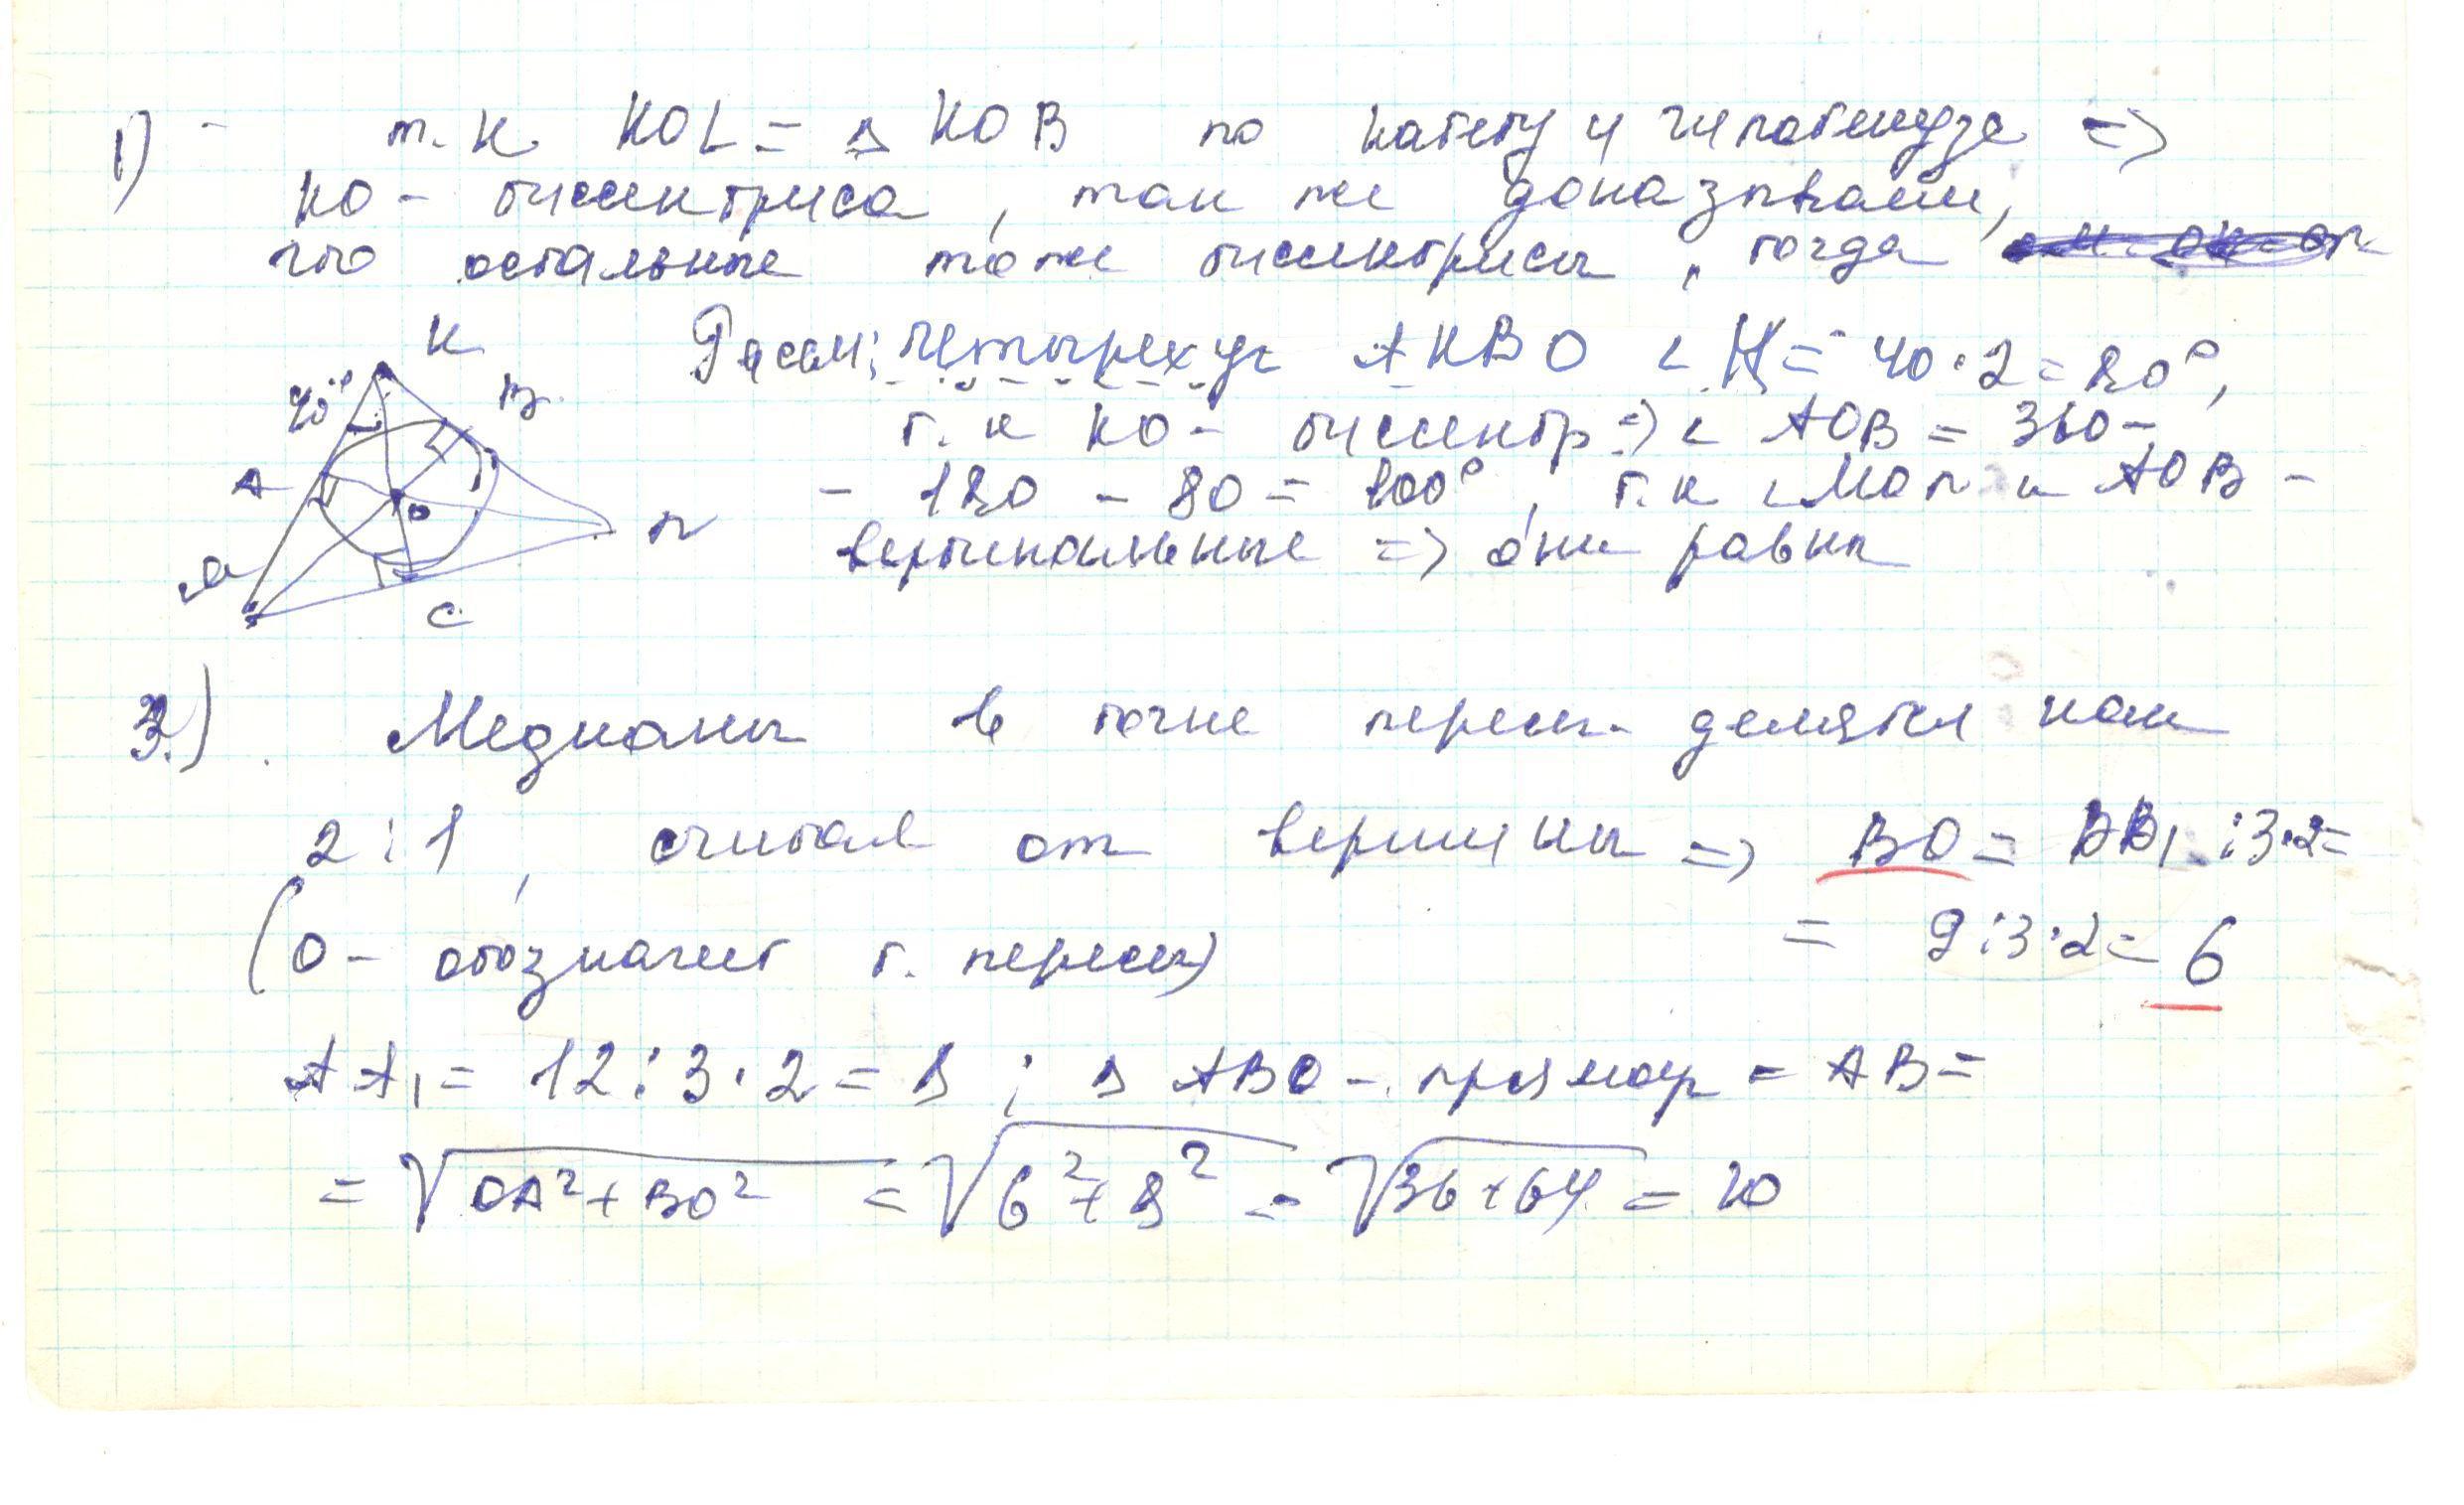 1) - т.к. KOL = Δ KOB по катету и гипотенузе =>
KO - биссектриса, так же доказываем,
что остальные тоже биссектрисы, тогда
K
Рассм; четырехуг AKBO < K = 40·2 = 80°,
40° B
т.к KO - биссектр => < AOB = 360 -
A
- 180 - 80 = 100°, т.к < MON и AOB -
O N
вертикальные => они равны
M
C
3.) Медианы в точке пересеч. делятся как
2:1, считая от вершины => BO = BB₁ :3·2=
(O - обозначет т. пересеч) = 9:3·2= 6
AA₁ = 12:3·2 = 8 ; Δ ABO - прямоуг = AB =
= √OA²+BO² = √6²+8² = √36+64 = 10